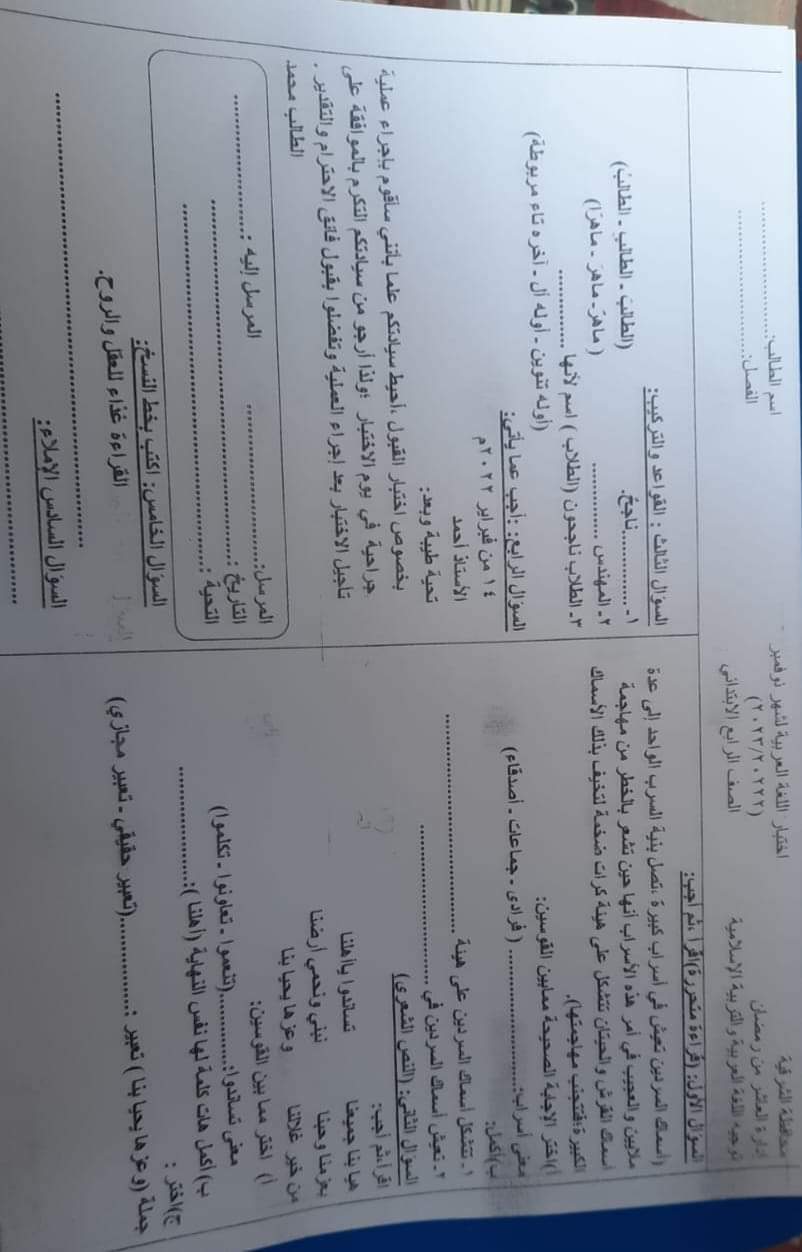 محافظة الشرقية
إدارة العاشر من رمضان
توجيه اللغة العربية والتربية الإسلامية
اختبار اللغة العربية لشهر نوفمبر
(٢٠٢٣/٢٠٢٢)
الصف الرابع الابتدائي
اسم الطالب:....................
الفصل:....................
السؤال الأول: (قراءة متحررة)اقرأ ،ثم أجب:
(أسماك السردين تعيش في أسراب كبيرة ،تصل بنية السرب الواحد إلى عدة
ملايين والعجيب في أمر هذه الأسراب أنها حين تشعر بالخطر من مهاجمة
أسماك القرش والحيتان تتشكل على هيئة كرات ضخمة لتخيف بذلك الأسماك
الكبيرة؛فتتجنب مهاجمتها).
أ)اختر الإجابة الصحيحة ممابين القوسين:
معنى أسراب:.................... ( فرادى - جماعات - أصدقاء)
ب)أكمل:
١- تتشكل أسماك السردين على هيئة ....................
٢- تعيش أسماك السردين في ....................
السؤال الثاني: (النص الشعرى)
اقرأ،ثم أجب:
هيا بنا جميعنا تساندوا ياأهلنا
بعزمنا وحبنا نبني ونحمي أرضنا
من خير غلالنا وعزها يحيا بنا
أ) اختر مما بين القوسين:
معنى تساندوا:....................(تنعموا - تعاونوا - تكلموا)
ب)أكمل هات كلمة لها نفس النهاية (أهلنا ):....................
ج)اختر :
جملة (وعزها يحيا بنا ) تعبير :....................(تعبير حقيقي - تعبير مجازي)
السؤال الثالث : القواعد والتركيب:
١- ....................ناجحٌ. (الطالبَ - الطالبِ - الطالبُ)
٢- المهندس .................... ( ماهرٌ - ماهرٍ - ماهرًا)
٣- الطلاب ناجحون (الطلاب ) اسم لأنها ....................
(أوله تنوين - أوله أل - آخره تاء مربوطة)
السؤال الرابع: :أجب عما يأتي:
١٤ من فبراير ٢٠٢٢م
الأستاذ أحمد
تحية طيبة وبعد:
بخصوص اختبار القبول، أحيط سيادتكم علما بأنني سأقوم بإجراء عملية
جراحية في يوم الاختبار ؛ولذا أرجو من سيادتكم التكرم بالموافقة على
تأجيل الاختبار بعد إجراء العملية وتفضلوا بقبول فائق الاحترام والتقدير .
الطالب محمد
المرسل:.................... المرسل إليه :....................
التاريخ :....................
التحية :....................
السؤال الخامس: اكتب بخط النسخ:
القراءة غذاء للعقل والروح.
السؤال السادس الإملاء: